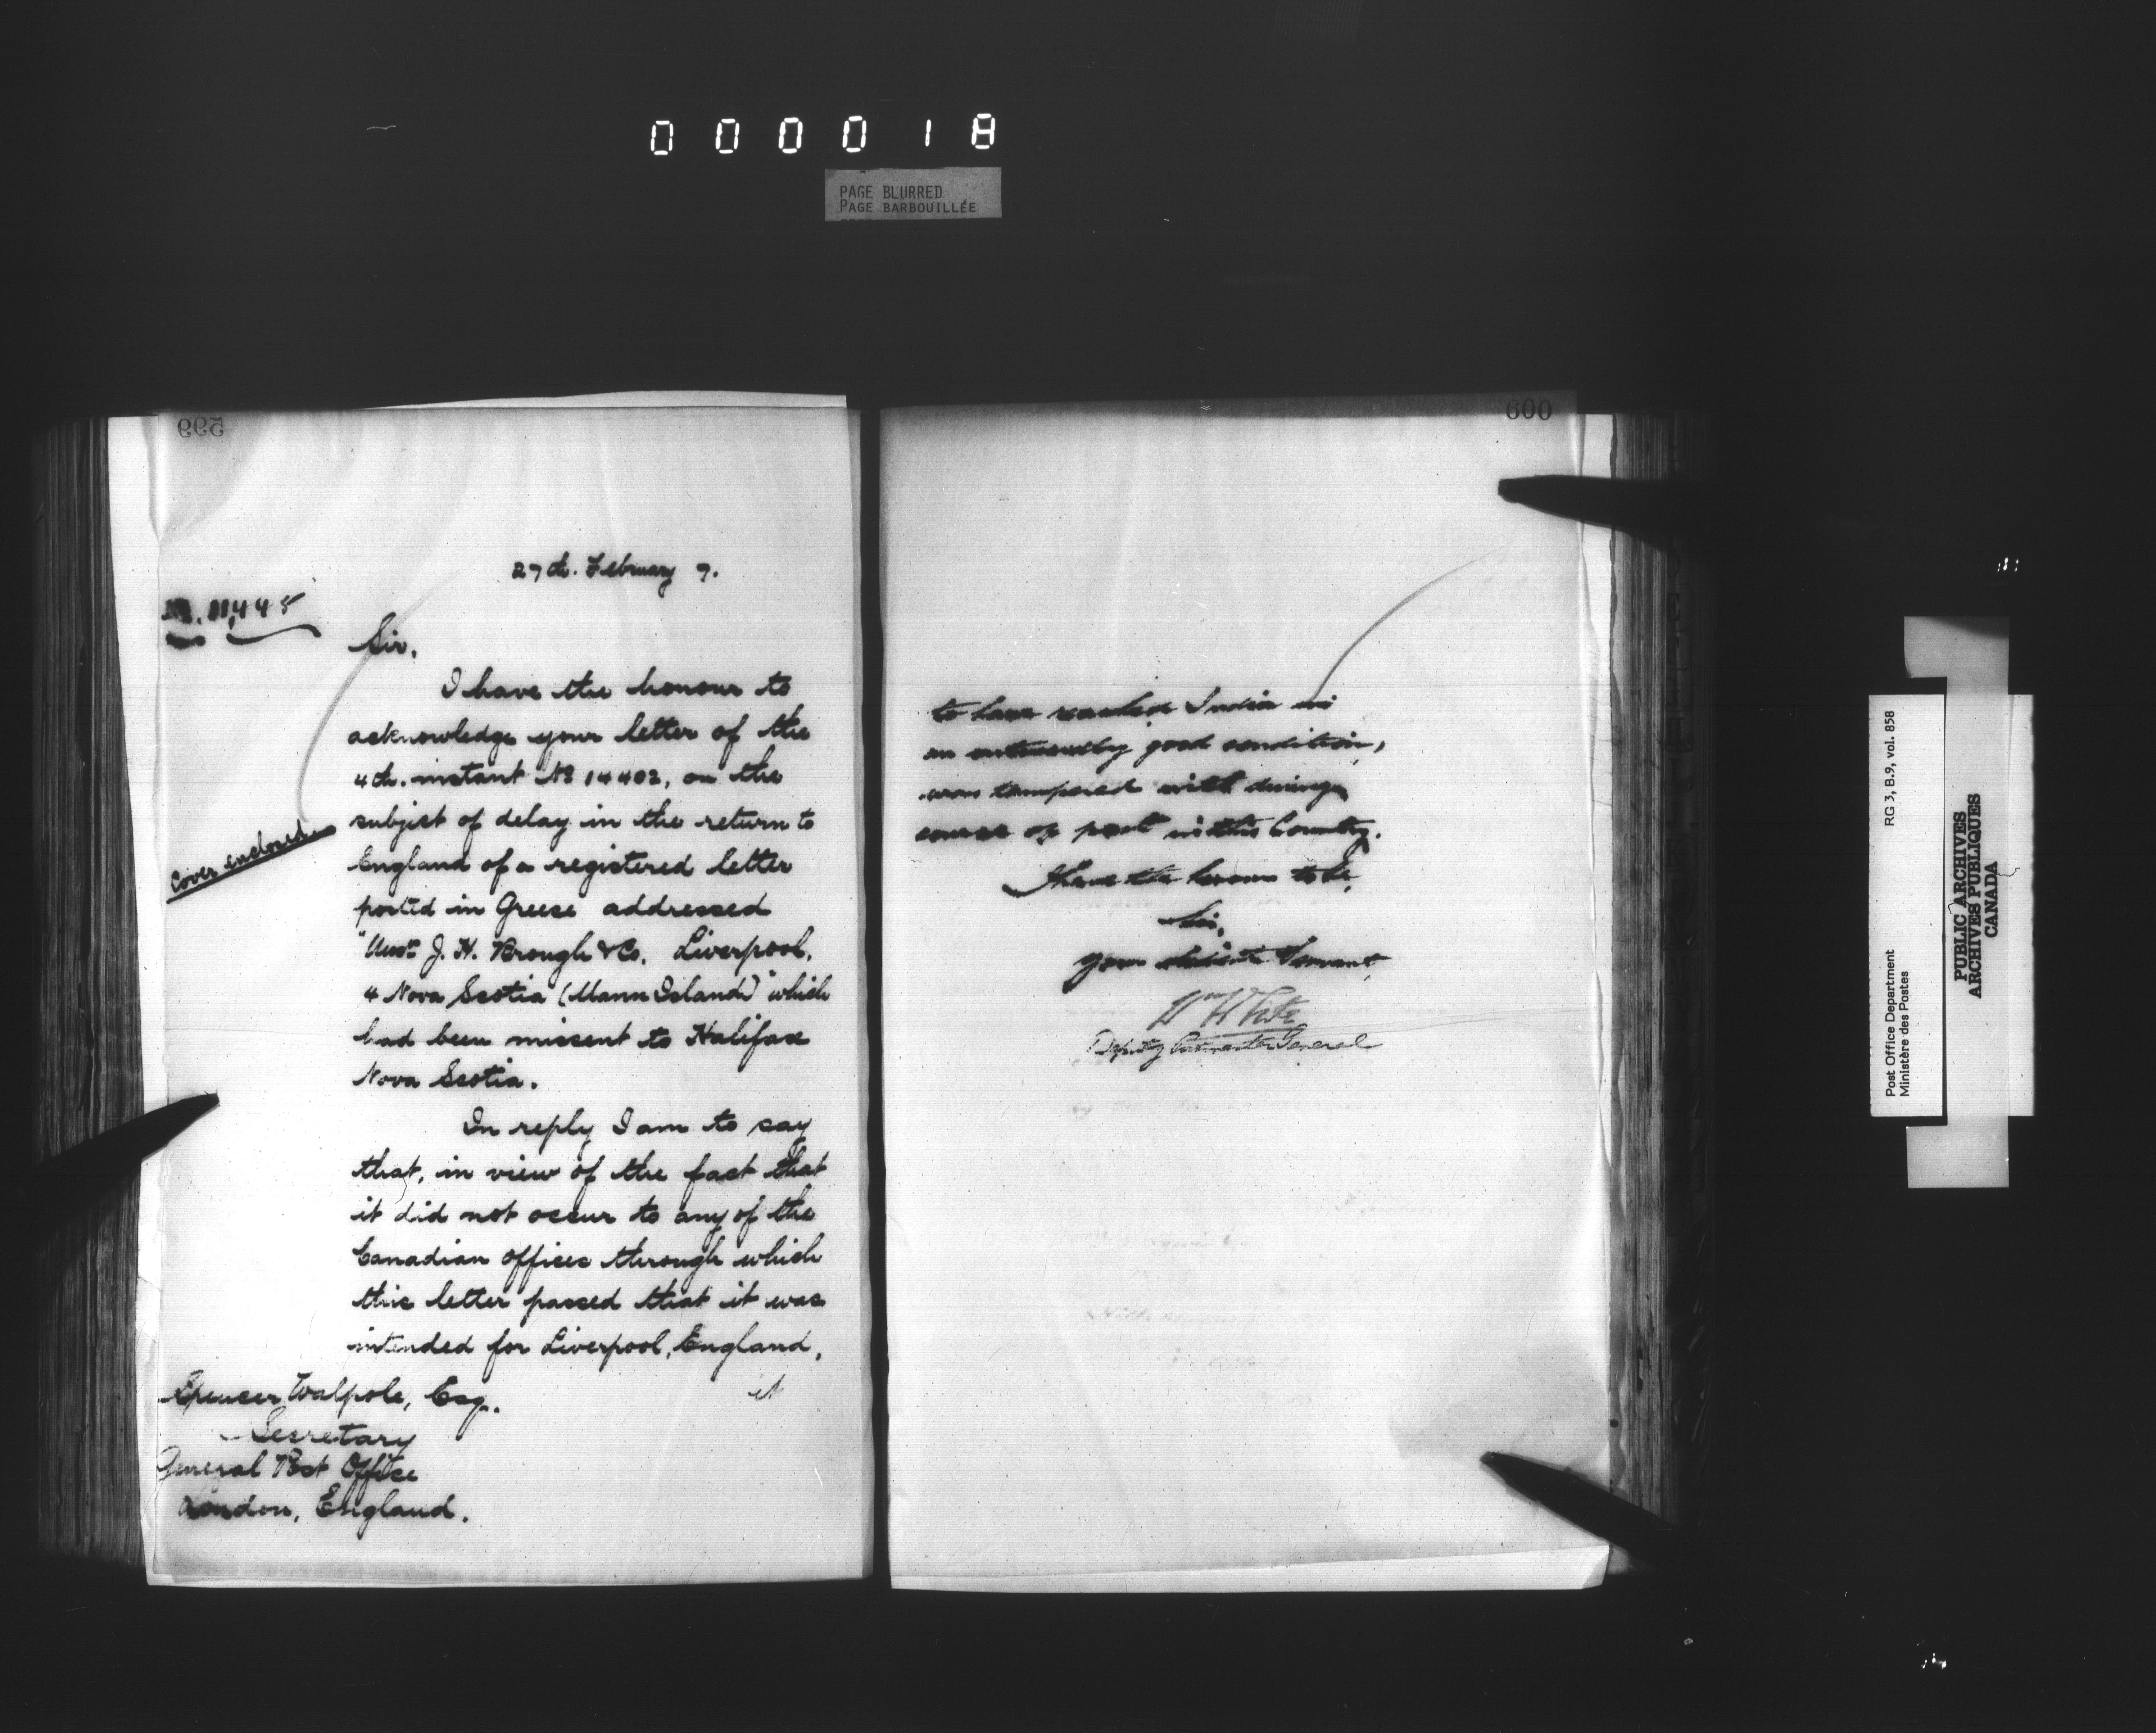 000018
PAGE BLURRED
PAGE BARBOUILLÉE
599
27th. February 7.
11,445
Sir,
I have the honour to
acknowledge your letter of the
4th. instant No 14402, on the
subject of delay in the return to
Cover enclosed
England of a registered letter
posted in Greece addressed
"Messrs J. H. Brough & Co. Liverpool.
4 Nova Scotia (Mann Island)" which
had been missent to Halifax
Nova Scotia.
In reply I am to say
that, in view of the fact that
it did not occur to any of the
Canadian offices through which
this letter passed that it was
intended for Liverpool, England,
it
Spencer Walpole, Esq.
Secretary
General Post Office
London, England.
600
to have reached India in
an outwardly good condition,
was tampered with during
course of post in this Country.
I have the honour to be,
Sir,
Your obedient Servant,
Wm White
Deputy Postmaster General
Post Office Department
Ministère des Postes
RG 3, B.9, vol. 858
PUBLIC ARCHIVES
ARCHIVES PUBLIQUES
CANADA